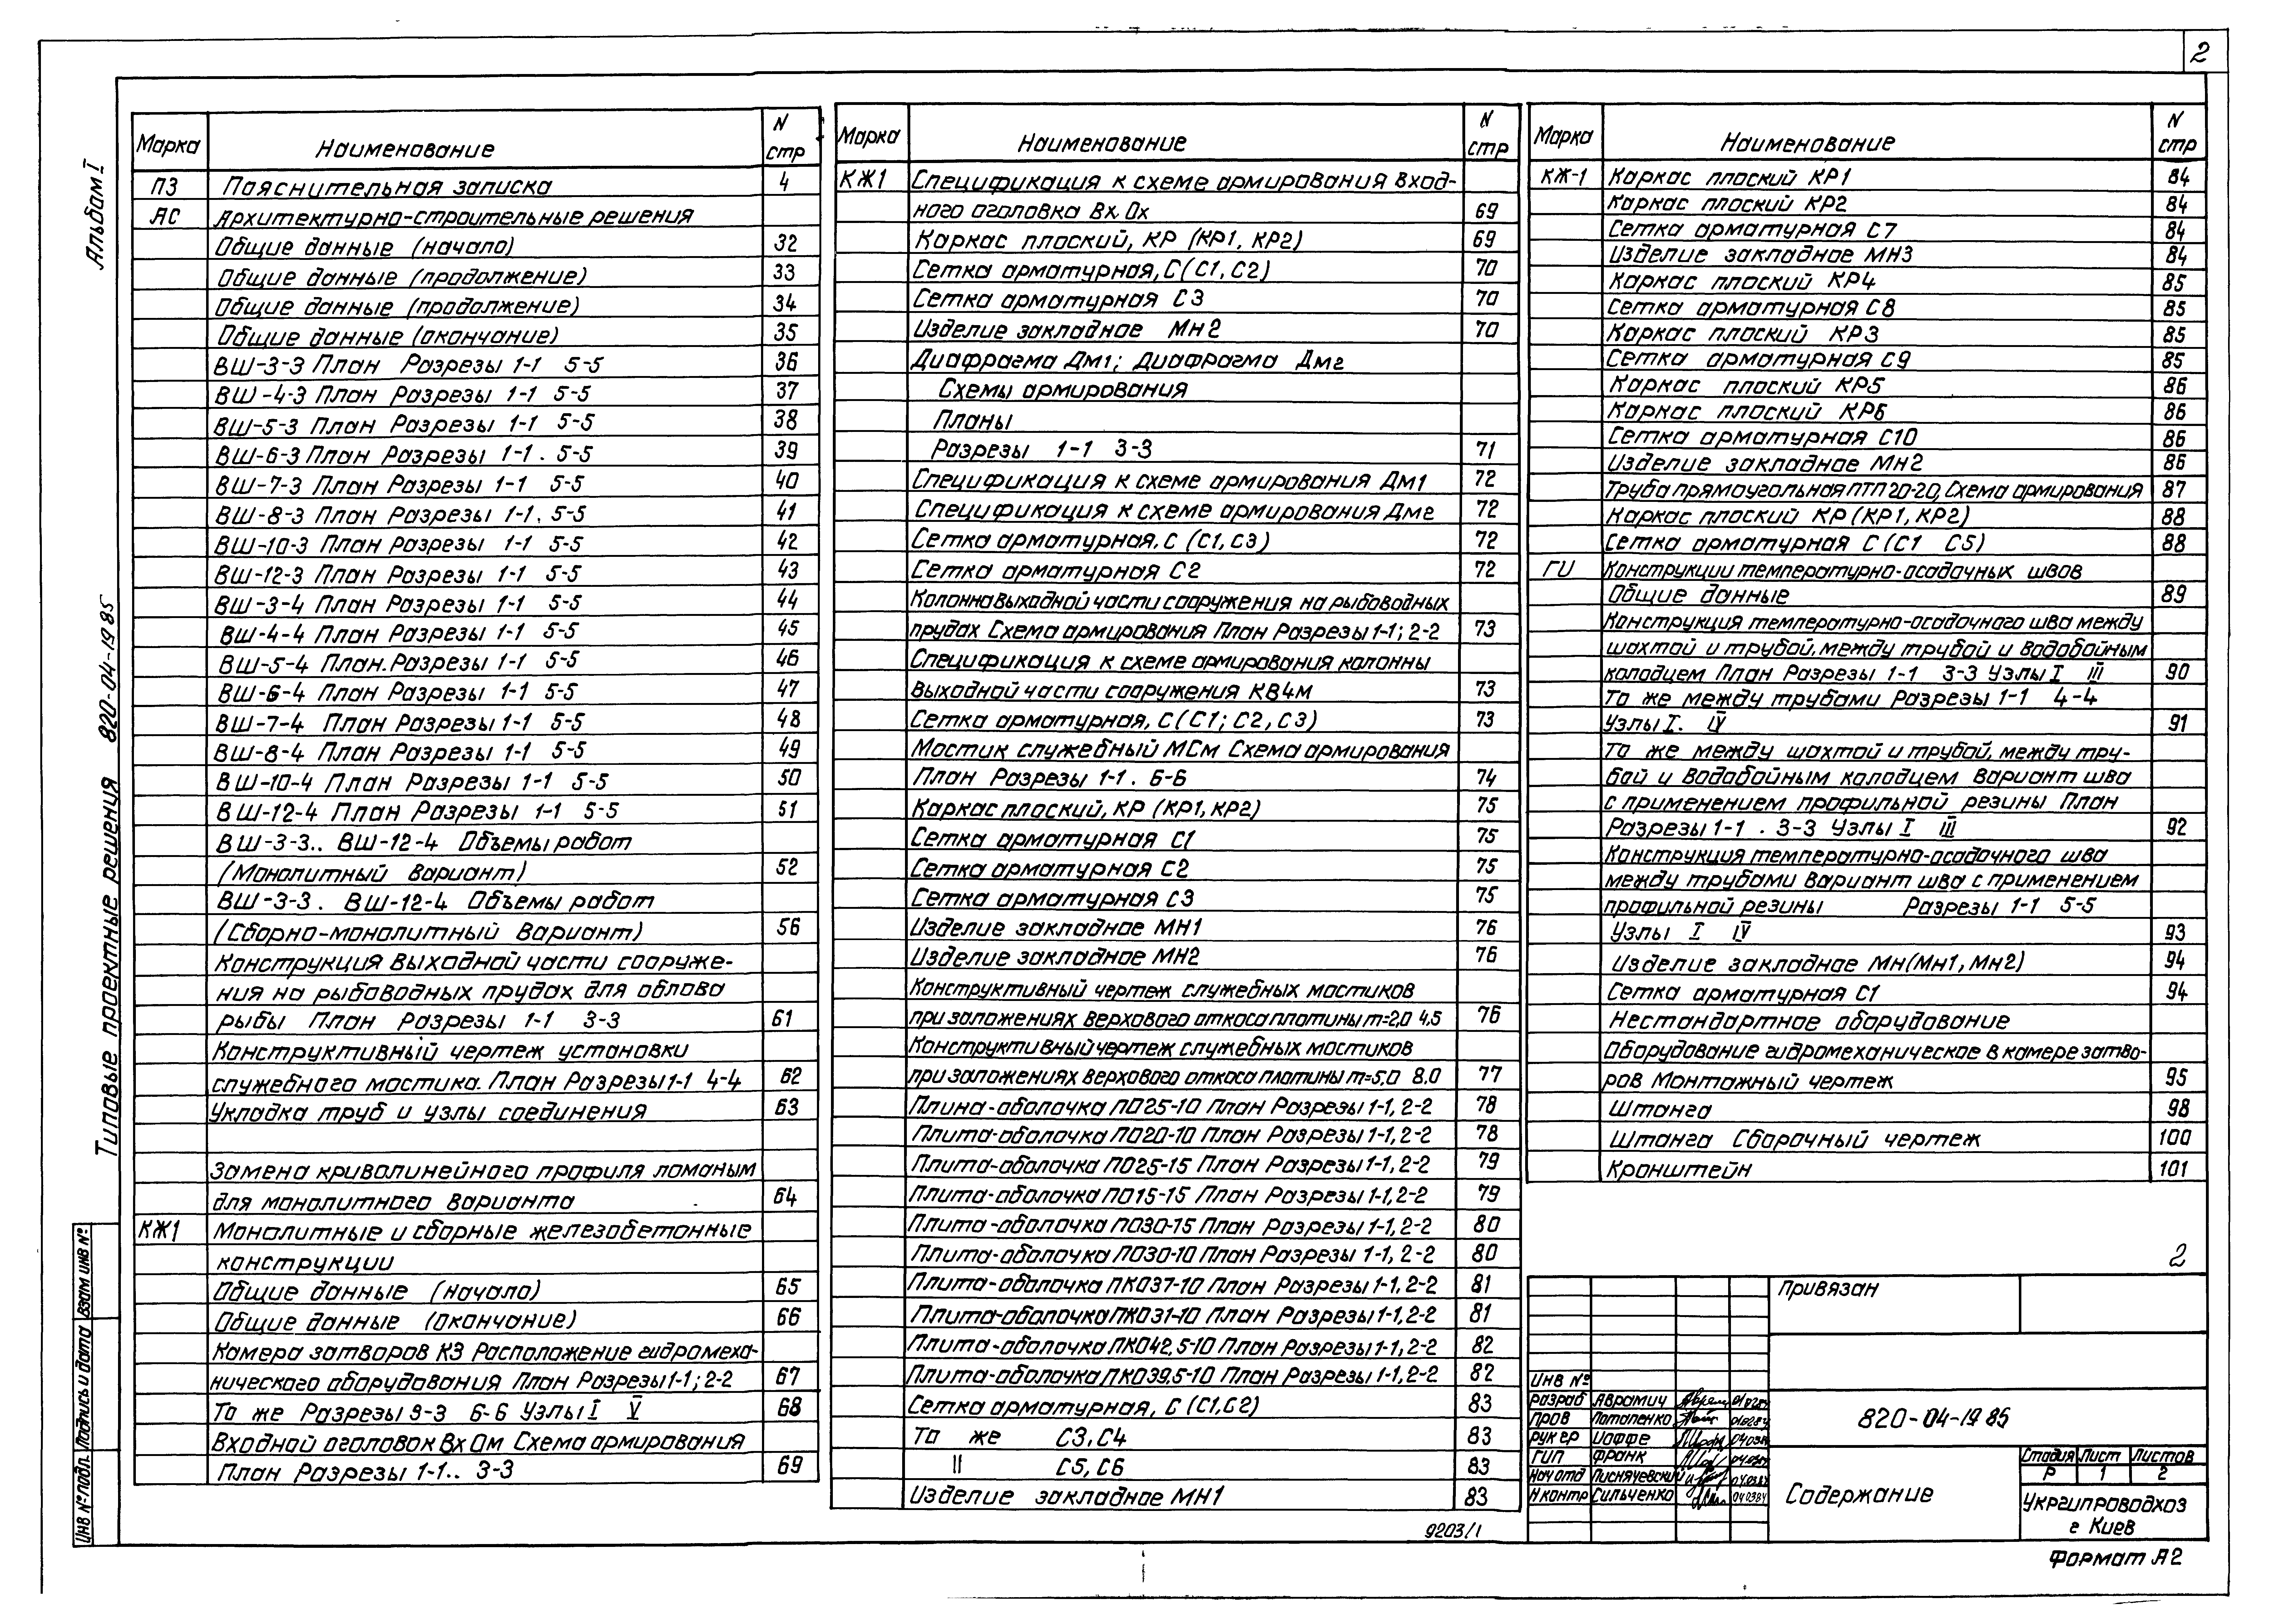 2
Альбом I
Типовые проектные решения 820-04-19 85
Марка Наименование N стр
ПЗ Пояснительная записка 4
АС Архитектурно-строительные решения
Общие данные (начало) 32
Общие данные (продолжение) 33
Общие данные (продолжение) 34
Общие данные (окончание) 35
ВШ-3-3 План Разрезы 1-1 5-5 36
ВШ-4-3 План Разрезы 1-1 5-5 37
ВШ-5-3 План Разрезы 1-1 5-5 38
ВШ-6-3 План Разрезы 1-1. 5-5 39
ВШ-7-3 План Разрезы 1-1 5-5 40
ВШ-8-3 План Разрезы 1-1. 5-5 41
ВШ-10-3 План Разрезы 1-1 5-5 42
ВШ-12-3 План Разрезы 1-1 5-5 43
ВШ-3-4 План Разрезы 1-1 5-5 44
ВШ-4-4 План Разрезы 1-1 5-5 45
ВШ-5-4 План. Разрезы 1-1 5-5 46
ВШ-6-4 План Разрезы 1-1 5-5 47
ВШ-7-4 План Разрезы 1-1 5-5 48
ВШ-8-4 План Разрезы 1-1 5-5 49
ВШ-10-4 План Разрезы 1-1 5-5 50
ВШ-12-4 План Разрезы 1-1 5-5 51
ВШ-3-3.. ВШ-12-4 Объемы работ
(Монолитный вариант) 52
ВШ-3-3. ВШ-12-4 Объемы работ
(Сборно-монолитный вариант) 56
Конструкция выходной части сооруже-
ния на рыбоводных прудах для облова
рыбы План Разрезы 1-1 3-3 61
Конструктивный чертеж установки
служебного мостика. План Разрезы 1-1 4-4 62
Укладка труб и узлы соединения 63
Замена криволинейного профиля ломаным
для монолитного варианта 64
КЖ1 Монолитные и сборные железобетонные
конструкции
Общие данные (начало) 65
Общие данные (окончание) 66
Камера затворов КЗ Расположение гидромеха-
нического оборудования План Разрезы 1-1; 2-2 67
То же Разрезы 3-3 6-6 Узлы I V 68
Входной оголовок Вх Ом Схема армирования
План Разрезы 1-1.. 3-3 69
Марка Наименование N стр
КЖ1 Спецификация к схеме армирования вход-
ного оголовка Вх Ох 69
Каркас плоский, КР (КР1, КР2) 69
Сетка арматурная, С (С1, С2) 70
Сетка арматурная С3 70
Изделие закладное Мн2 70
Диафрагма Дм1; Диафрагма Дм2
Схемы армирования
Планы
Разрезы 1-1 3-3 71
Спецификация к схеме армирования Дм1 72
Спецификация к схеме армирования Дм2 72
Сетка арматурная. С (С1, С3) 72
Сетка арматурная С2 72
Колонна выходной части сооружения на рыбоводных
прудах Схема армирования План Разрезы 1-1; 2-2 73
Спецификация к схеме армирования колонны
выходной части сооружения КВ4м 73
Сетка арматурная, С (С1; С2, С3) 73
Мостик служебный МСм Схема армирования
План Разрезы 1-1. 6-6 74
Каркас плоский, КР (КР1, КР2) 75
Сетка арматурная С1 75
Сетка арматурная С2 75
Сетка арматурная С3 75
Изделие закладное МН1 76
Изделие закладное МН2 76
Конструктивный чертеж служебных мостиков
при заложениях верхового откоса плотины m=2,0 4,5 76
Конструктивный чертеж служебных мостиков
при заложениях верхового откоса плотины m=5,0 8.0 77
Плина-оболочка ПО25-10 План Разрезы 1-1, 2-2 78
Плита-оболочка ПО20-10 План Разрезы 1-1, 2-2 78
Плита-оболочка ПО25-15 План Разрезы 1-1, 2-2 79
Плита-оболочка ПО15-15 План Разрезы 1-1, 2-2 79
Плита-оболочка ПО30-15 План Разрезы 1-1, 2-2 80
Плита-оболочка ПО30-10 План Разрезы 1-1, 2-2 80
Плита-оболочка ПКО37-10 План Разрезы 1-1, 2-2 81
Плита-оболочка ПКО31-10 План Разрезы 1-1, 2-2 81
Плита-оболочка ПКО42,5-10 План Разрезы 1-1, 2-2 82
Плита-оболочка ПКО39,5-10 План Разрезы 1-1, 2-2 82
Сетка арматурная, С (С1, С2) 83
То же С3, С4 83
" С5, С6 83
Изделие закладное МН1 83
Марка Наименование N стр
КЖ-1 Каркас плоский КР1 84
Каркас плоский КР2 84
Сетка арматурная С7 84
Изделие закладное МН3 84
Каркас плоский КР4 85
Сетка арматурная С8 85
Каркас плоский КР3 85
Сетка арматурная С9 85
Каркас плоский КР5 86
Каркас плоский КР6 86
Сетка арматурная С10 86
Изделие закладное Мн2 86
Труба прямоугольная ПТП 20-20, Схема армирования 87
Каркас плоский КР (КР1, КР2) 88
Сетка арматурная С (С1 С5) 88
ГИ Конструкции температурно-осадочных швов
Общие данные 89
Конструкция температурно-осадочного шва между
шахтой и трубой, между трубой и водобойным
колодцем План Разрезы 1-1 3-3 Узлы I III 90
То же между трубами Разрезы 1-1 4-4
Узлы I. IV 91
То же между шахтой и трубой, между тру-
бой и водобойным колодцем Вариант шва
с применением профильной резины План
Разрезы 1-1. 3-3 Узлы I III 92
Конструкция температурно-осадочного шва
между трубами Вариант шва с применением
профильной резины Разрезы 1-1 5-5
Узлы I IV 93
Изделие закладное Мн (Мн1, Мн2) 94
Сетка арматурная С1 94
Нестандартное оборудование
Оборудование гидромеханическое в камере затво-
ров Монтажный чертеж 95
Штанга 98
Штанга Сборочный чертеж 100
Кронштейн 101
2
Привязан
Инв №
Разраб Аврамич
Пров Потапенко
Рук гр Иоффе 040384
ГИП Франк 040384
Нач отд Лиснячевский 040384
Н контр Сильченко 040384
820-04-19 85
Содержание
Стадия Лист Листов
Р 1 2
Укргипроводхоз
г Киев
Формат А2
9203/1
Инв № подл. Подпись и дата Взам инв №